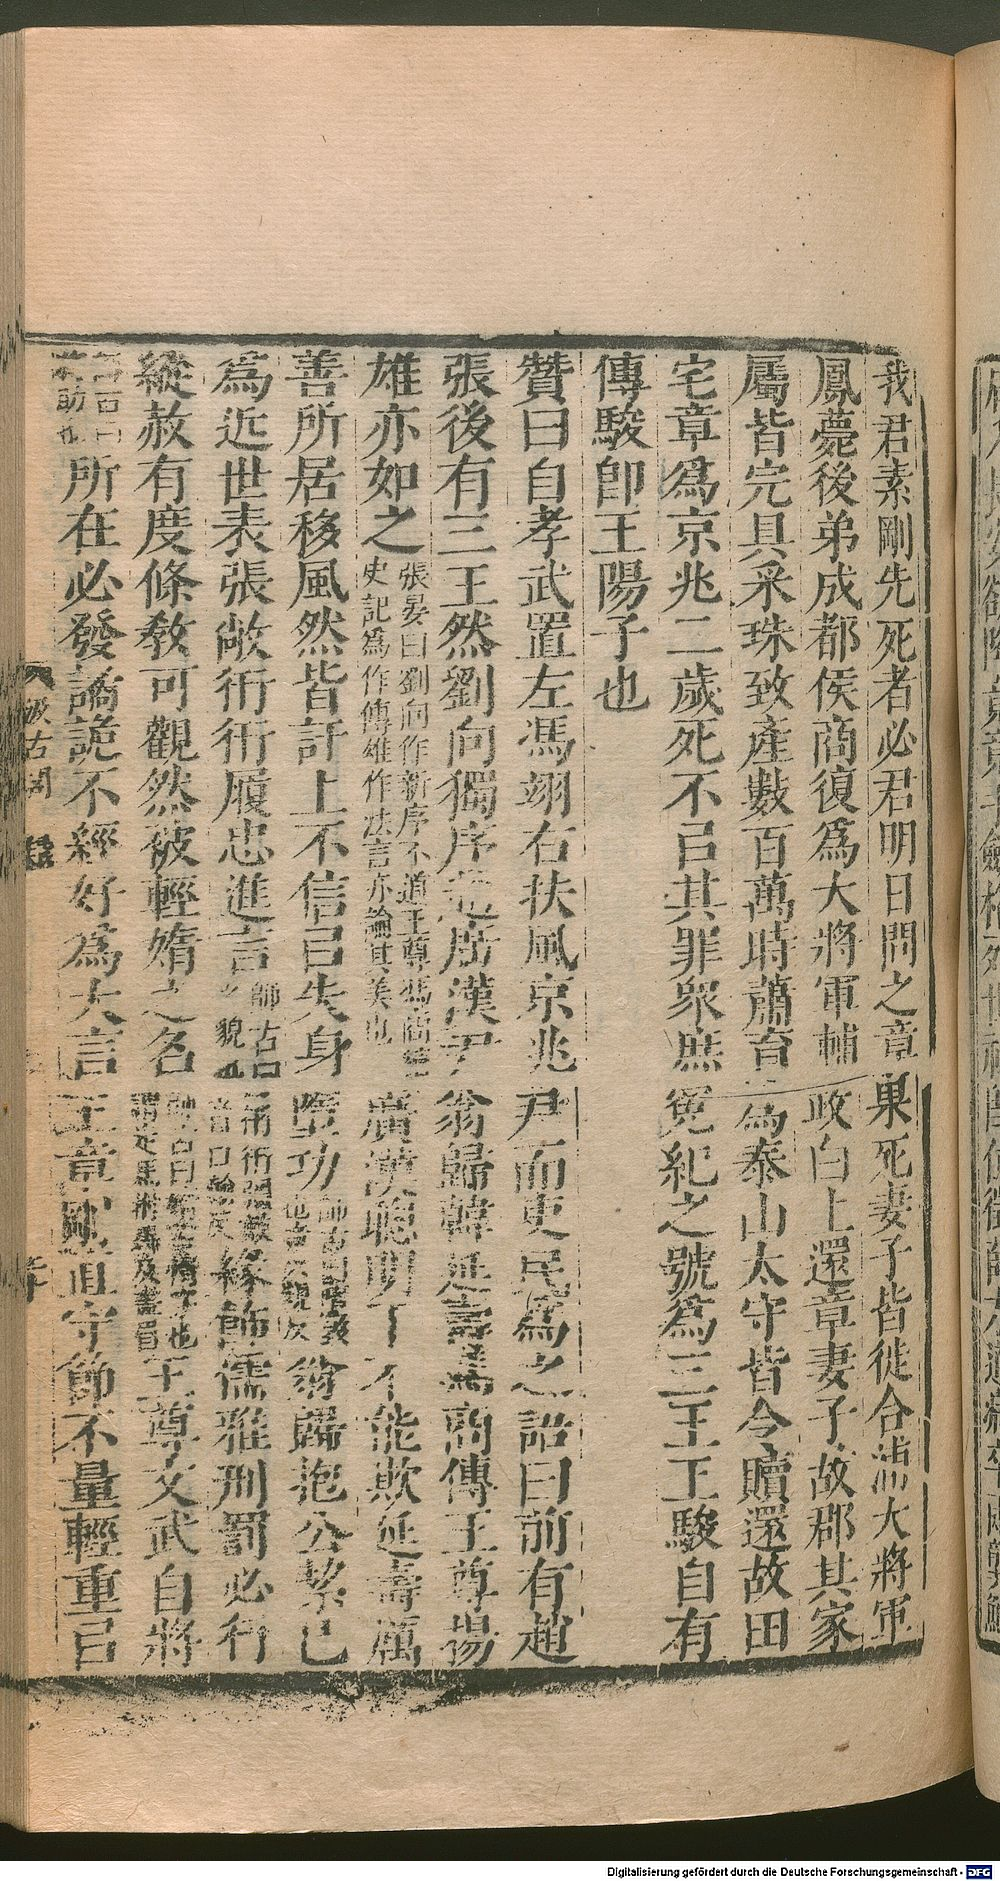 我君素剛先死者必君明日問之章果死妻子皆徙合浦大將軍
鳳薨後弟成都侯商復爲大將軍輔政白上還章妻子故郡其家
屬皆完具采珠致產數百萬時蕭育爲泰山太守皆令贖還故田
宅章爲京兆二歲死不㠯其罪衆庶冤紀之號爲三王王駿自有
傳駿卽王陽子也
贊曰自孝武置左馮翊右扶風京兆尹而吏民爲之語曰前有趙
張後有三王然劉向獨序趙廣漢尹翁歸韓延壽馮商傳王尊揚
雄亦如之張晏曰劉向作新序不道王尊馮商續史記爲作傳雄作法言亦論其美也廣漢聰明下不能欺延壽厲
善所居移風然皆訐上不信㠯失身墮功翁歸抱公絜己
爲近世表張敞衎衎履忠進言師古曰緣飾儒雅刑罰必行
縱赦有度條敎可觀然被輕媠之名王尊文武自將
所在必發譎詭不經好爲大言王章剛直守節不量輕重㠯
汲古閣
Digitalisierung gefördert durch die Deutsche Forschungsgemeinschaft - DFG